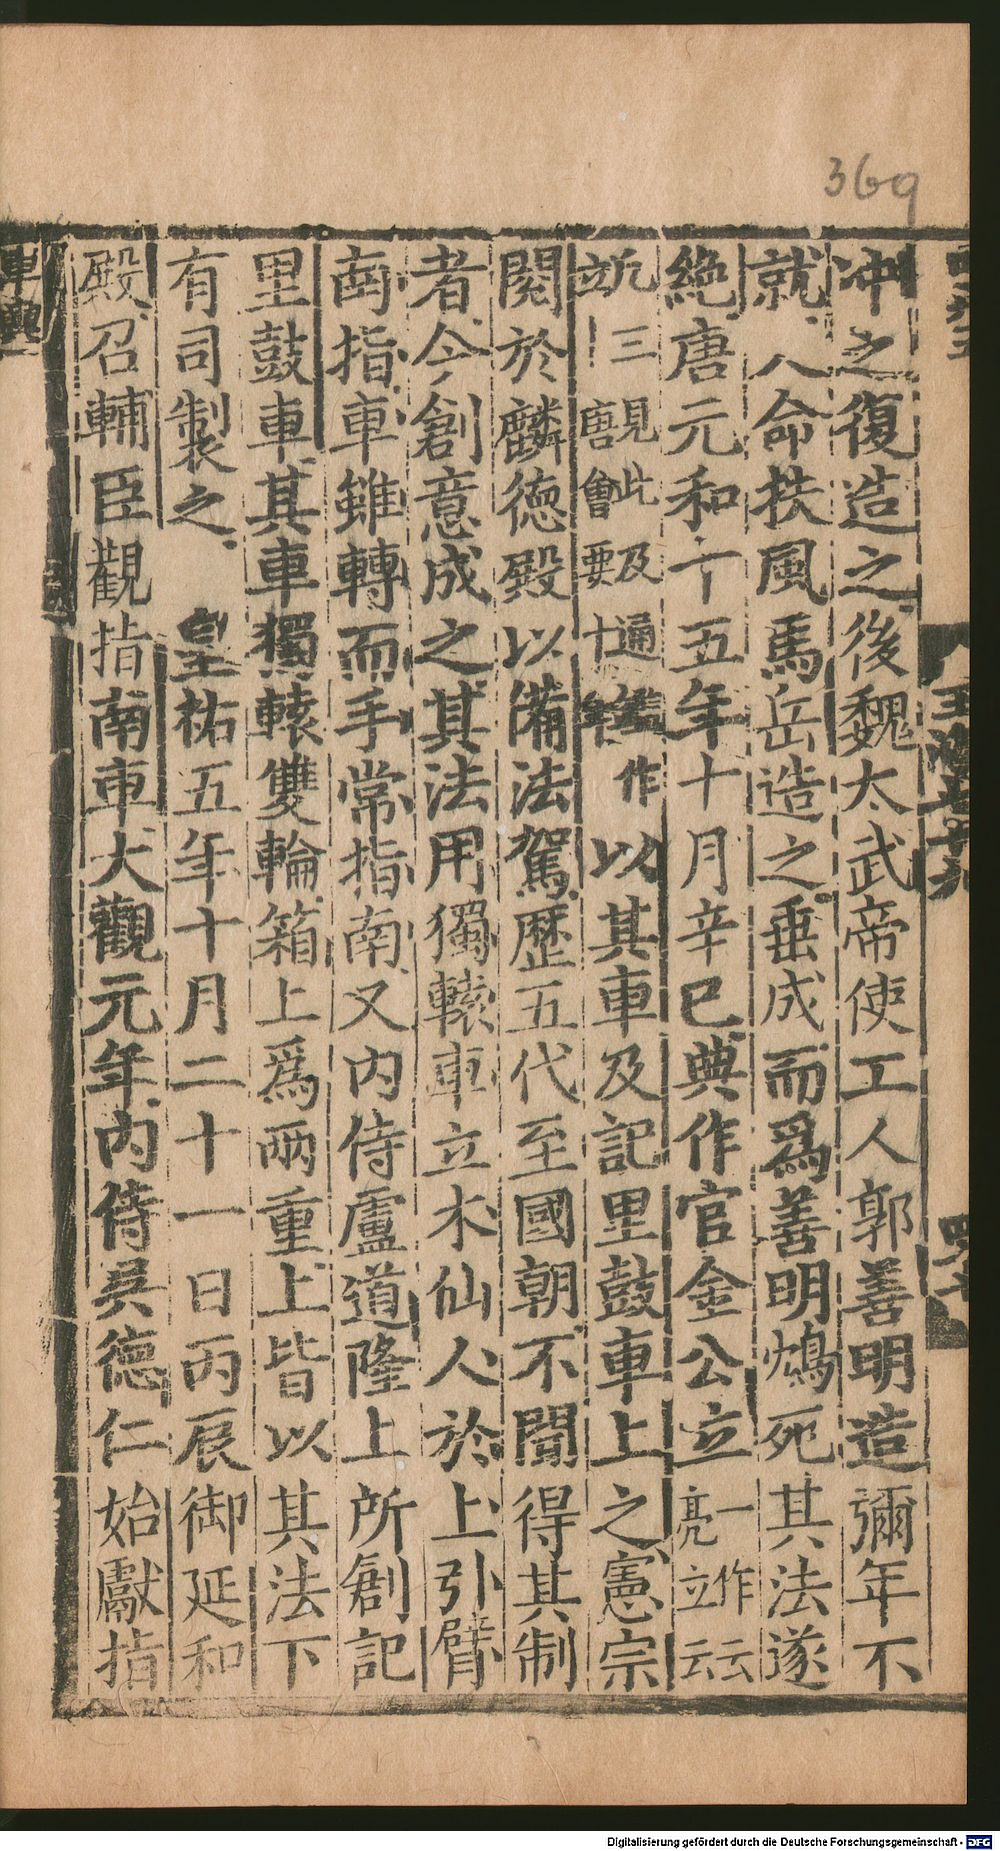 369
冲之復造之後魏太武帝使工人郭善明造彌年不
就人命扶風馬岳造之垂成而爲善明鴆死其法遂
絶唐元和十五年十月辛巳典作官金公立一作云亮立云
三見此及通鑑作立唐會要十年以其車及記里鼓車上之憲宗
閱於麟德殿以備法駕歷五代至國朝不聞得其制
者今創意成之其法用獨轅車立木仙人於上引臂
南指車雖轉而手常指南又内侍盧道隆上所創記
里鼓車其車獨轅雙輪箱上爲兩重上皆以其法下
有司製之　皇祐五年十月二十一日丙辰御延和
殿召輔臣觀指南車大觀元年内侍吳德仁始獻指
車輿
Digitalisierung gefördert durch die Deutsche Forschungsgemeinschaft - DFG